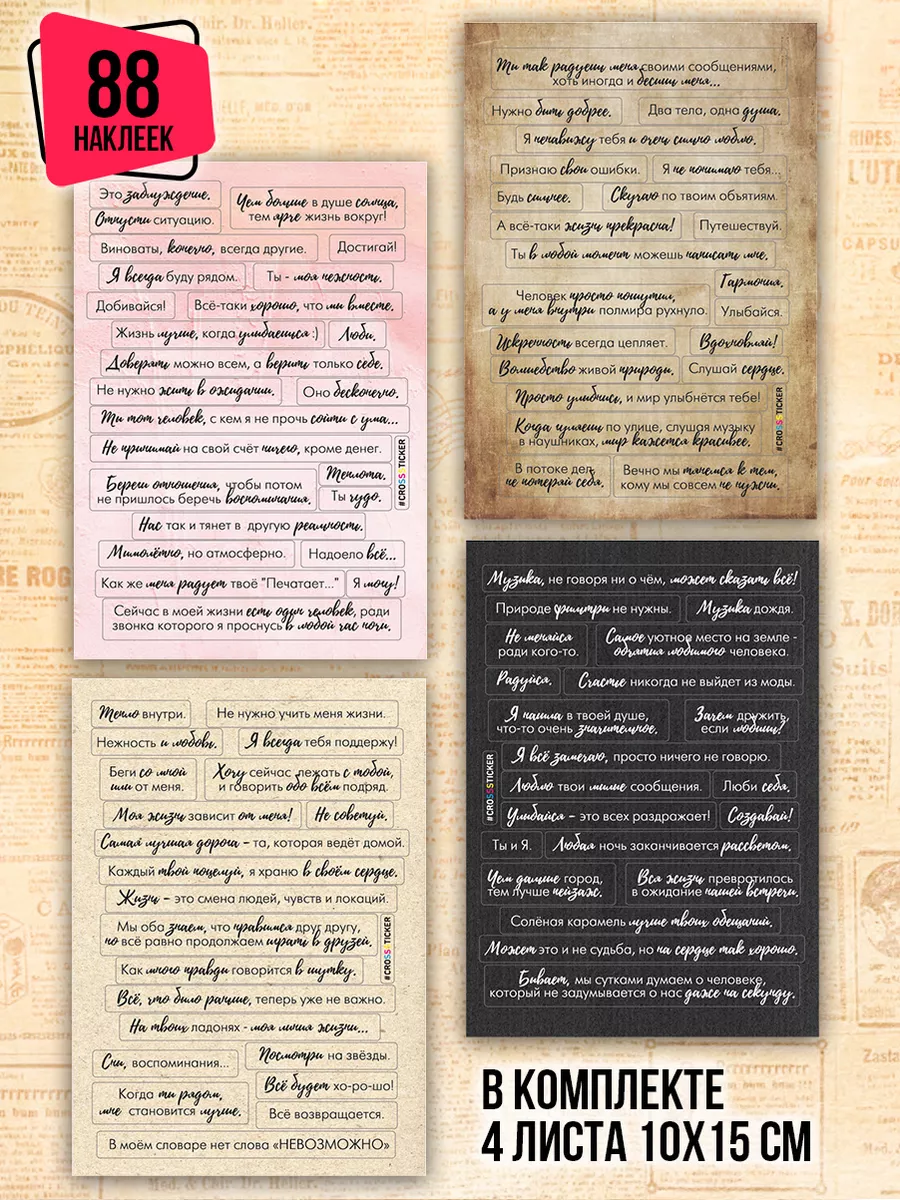 88
НАКЛЕЕК
Это заблуждение.
Отпусти ситуацию.
Чем больше в душе солнца,
тем ярче жизнь вокруг!
Виноваты, конечно, всегда другие.
Достигай!
Я всегда буду рядом.
Ты - моя нежность.
Добивайся!
Всё-таки хорошо, что мы вместе.
Жизнь лучше, когда улыбаешься :)
Люби.
Доверять можно всем, а верить только себе.
Не нужно жить в ожидании.
Оно бесконечно.
Ты тот человек, с кем я не прочь сойти с ума...
Не принимай на свой счёт ничего, кроме денег.
Береги отношения, чтобы потом
не пришлось беречь воспоминания.
Теплота.
Ты чудо.
#CROSSSTICKER
Нас так и тянет в другую реальность.
Мимолётно, но атмосферно.
Надоело всё...
Как же меня радует твоё "Печатает..."
Я могу!
Сейчас в моей жизни есть один человек, ради
звонка которого я проснусь в любой час ночи.
Ты так радуешь меня своими сообщениями,
хоть иногда и бесишь меня...
Нужно быть добрее.
Два тела, одна душа.
Я ненавижу тебя и очень сильно люблю.
Признаю свои ошибки.
Я не понимаю тебя...
Будь сильнее.
Скучаю по твоим объятиям.
А всё-таки жизнь прекрасна!
Путешествуй.
Ты в любой момент можешь написать мне.
Человек просто пошутил,
а у меня внутри полмира рухнуло.
Гармония.
Улыбайся.
Искренность всегда цепляет.
Вдохновляй!
Волшебство живой природы.
Слушай сердце.
Просто улыбнись, и мир улыбнётся тебе!
Когда гуляешь по улице, слушая музыку
в наушниках, мир кажется красивее.
#CROSSSTICKER
В потоке дел,
не потеряй себя.
Вечно мы тянемся к тем,
кому мы совсем не нужны.
Тепло внутри.
Не нужно учить меня жизни.
Нежность и любовь.
Я всегда тебя поддержу!
Беги со мной
или от меня.
Хочу сейчас лежать с тобой,
и говорить обо всём подряд.
Моя жизнь зависит от меня!
Не советуй.
Самая лучшая дорога - та, которая ведёт домой.
Каждый твой поцелуй, я храню в своём сердце.
Жизнь - это смена людей, чувств и локаций.
Мы оба знаем, что нравимся друг другу,
но всё равно продолжаем играть в друзей.
#CROSSSTICKER
Как много правды говорится в шутку.
Всё, что было раньше, теперь уже не важно.
На твоих ладонях - моя линия жизни...
Сны, воспоминания...
Посмотри на звёзды.
Когда ты рядом,
мне становится лучше.
Всё будет хо-ро-шо!
Всё возвращается.
В моём словаре нет слова «НЕВОЗМОЖНО»
Музыка, не говоря ни о чём, может сказать всё!
Природе фильтры не нужны.
Музыка дождя.
Не меняйся
ради кого-то.
Самое уютное место на земле -
объятия любимого человека.
Радуйся.
Счастье никогда не выйдет из моды.
Я нашла в твоей душе,
что-то очень значительное.
Зачем дружить,
если любишь?
Я всё замечаю, просто ничего не говорю.
#CROSSSTICKER
Люблю твои милые сообщения.
Люби себя.
Улыбайся - это всех раздражает!
Создавай!
Ты и Я.
Любая ночь заканчивается рассветом.
Чем дальше город,
тем лучше пейзаж.
Вся жизнь превратилась
в ожидание нашей встречи.
Солёная карамель лучше твоих обещаний.
Может это и не судьба, но на сердце так хорошо.
Бывает, мы сутками думаем о человеке,
который не задумывается о нас даже на секунду.
В КОМПЛЕКТЕ
4 ЛИСТА 10X15 СМ